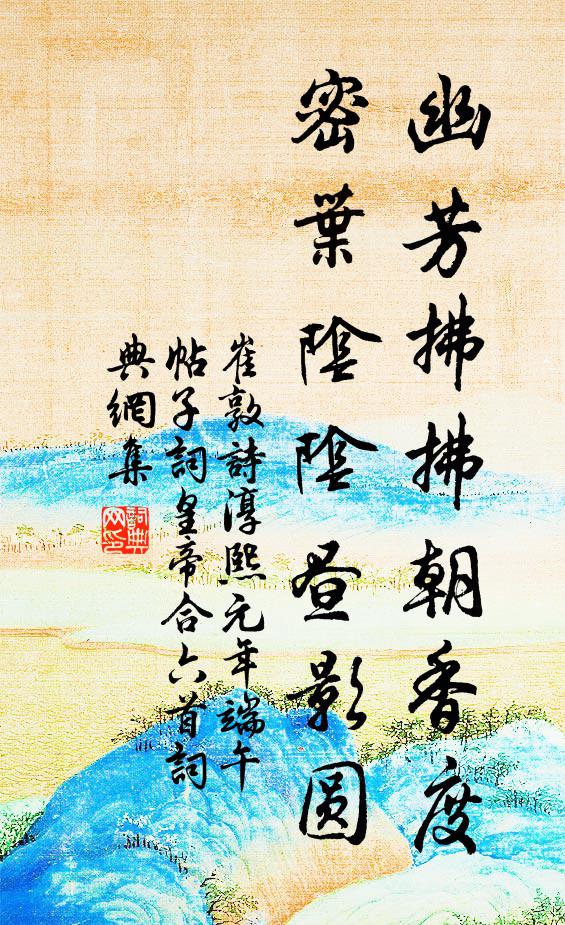 幽芳拂拂朝香度
密葉陰陰昼影圓
崔敦詩淳熙元年端午
帖子詞皇帝合六首詞
典網集
詞典
网印